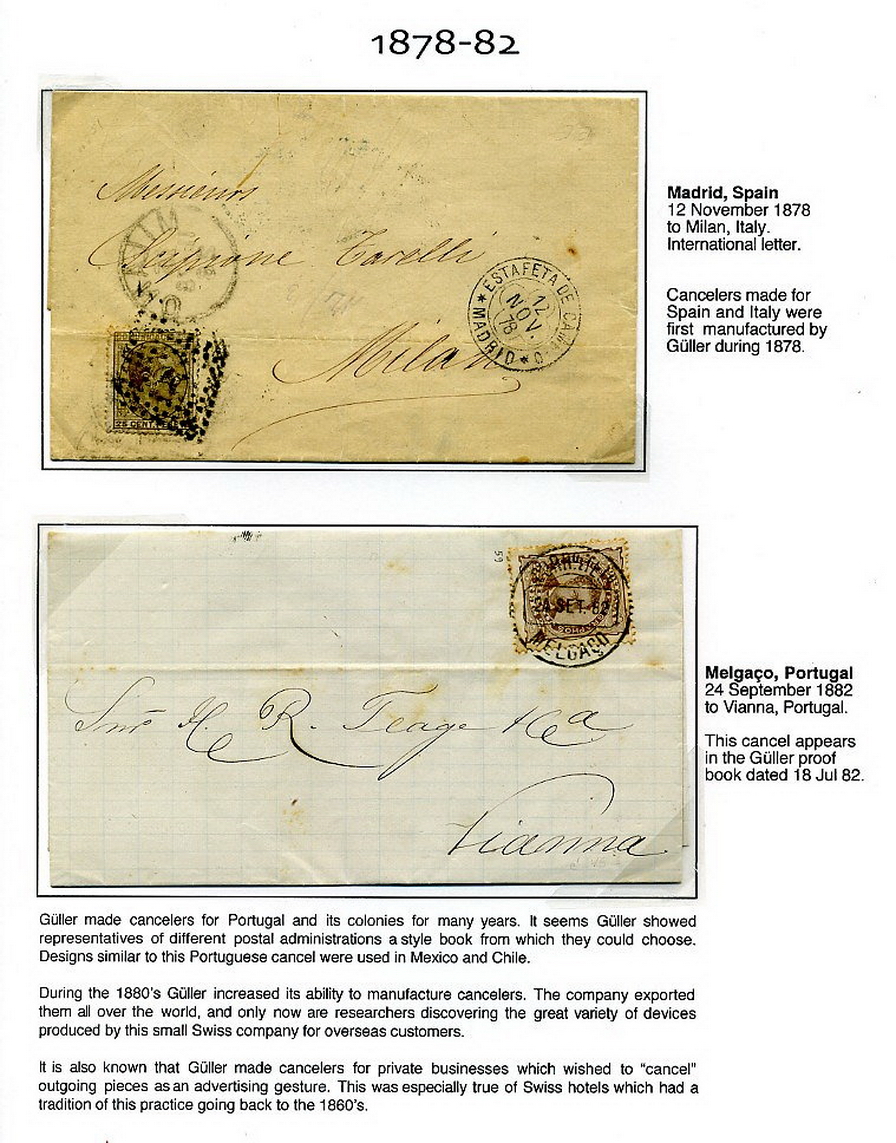 1878-82
Messieurs
Scipione Tarelli
Milan
★ ESTAFETA DE CAMBIO ★ MADRID
12
NOV.
78
25 CENT. PESETA
Madrid, Spain
12 November 1878
to Milan, Italy.
International letter.
Cancelers made for
Spain and Italy were
first manufactured by
Güller during 1878.
59
24 SET. 82
MELGAÇO
Snrs H. R. Teage & Ca
Vianna
Melgaço, Portugal
24 September 1882
to Vianna, Portugal.
This cancel appears
in the Güller proof
book dated 18 Jul 82.
Güller made cancelers for Portugal and its colonies for many years. It seems Güller showed
representatives of different postal administrations a style book from which they could choose.
Designs similar to this Portuguese cancel were used in Mexico and Chile.
During the 1880's Güller increased its ability to manufacture cancelers. The company exported
them all over the world, and only now are researchers discovering the great variety of devices
produced by this small Swiss company for overseas customers.
It is also known that Güller made cancelers for private businesses which wished to “cancel”
outgoing pieces as an advertising gesture. This was especially true of Swiss hotels which had a
tradition of this practice going back to the 1860's.